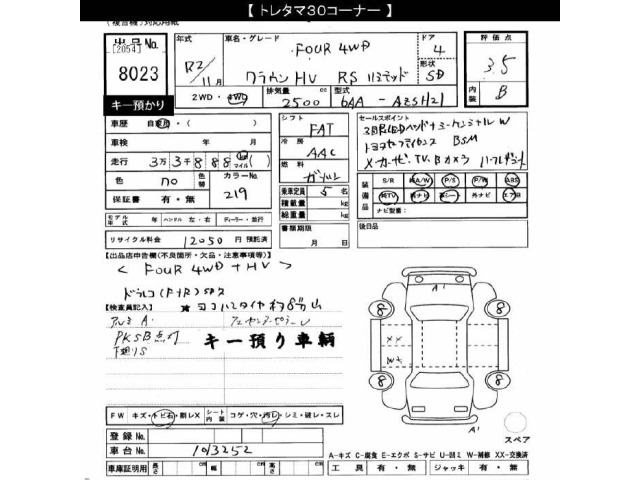 【 トレタマ30コーナー 】
出品No. [2054] 8023
キー預かり
年式 R2/11月
車名・グレード FOUR 4WD
クラウンHV RS リミテッド
ドア 4
形状 SD
評価点 3.5
内装 B
2WD・4WD
排気量 2500 cc
型式 6AA - AZSH21
車歴 自家用・
車検 年 月
走行 3万3千888 km マイル( )
色 no
色替
カラーNo. 219
保証書 有・無
シフト FAT
冷房 AAC
燃料 ガソリン
乗車定員 5 名
積載量 kg
総重量 kg
書類期限 月 日
セールスポイント
BSM
メーカーナビ、TV、Bカメラ ハーフレザーシート
装備品 S/R 純A/W P/S P/W ABS
純TV 純ナビ 革シート 外ナビ エア B
ナビ型番:
後日品
モデル年式 年 ハンドル 左・右 ディーラー・並行
リサイクル料金 12050 円 預託済
【出品店申告欄(不良箇所・欠品・注意事項等)】
< FOUR 4WD + HV >
ドラレコ(F+R)
【検査員記入】
アルミ A'
PKSB点灯
下廻りS
キー預り車輌
FW キズ・トビ石・割レX
シート内装 コゲ・穴・汚レ・シミ・破レ・スレ
登録No.
車台No. 103252
車庫証明用 長さ cm 幅 cm 高さ cm
A' 8 8 XX W* 8 8 A'
スペア
A-キズ C-腐食 E-エクボ S-サビ U-凹ミ W-補修 XX-交換済
工具 有・無 ジャッキ 有・無